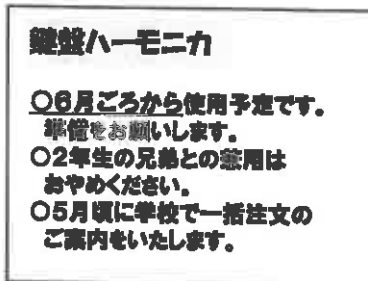 鍵盤ハーモニカ
○6月ごろから使用予定です。
準備をお願いします。
○2年生の兄弟との兼用は
おやめください。
○5月頃に学校で一括注文の
ご案内をいたします。